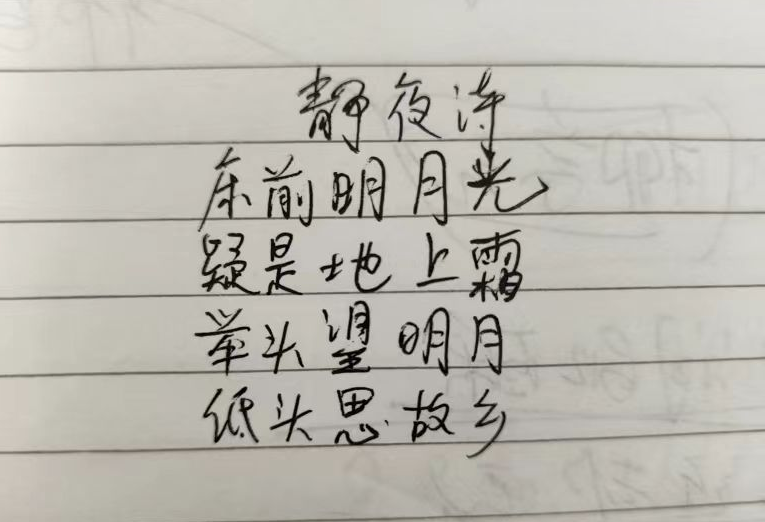 静夜诗
床前明月光
疑是地上霜
举头望明月
低头思故乡